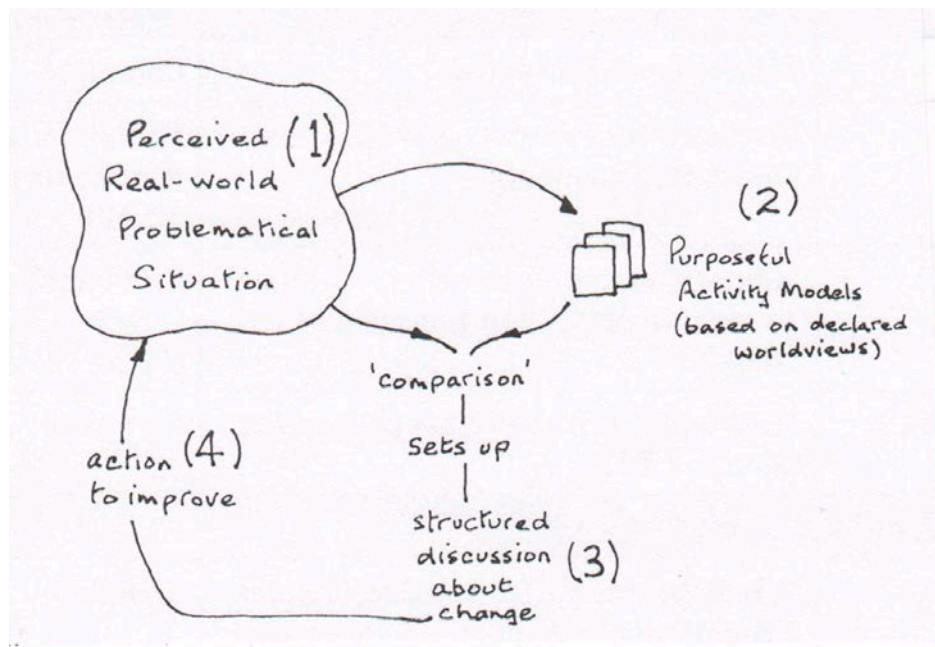 Perceived (1)
Real-world
Problematical
Situation
(2)
Purposeful
Activity Models
(based on declared
worldviews)
'comparison'
Sets up
structured
discussion (3)
about
change
action (4)
to improve